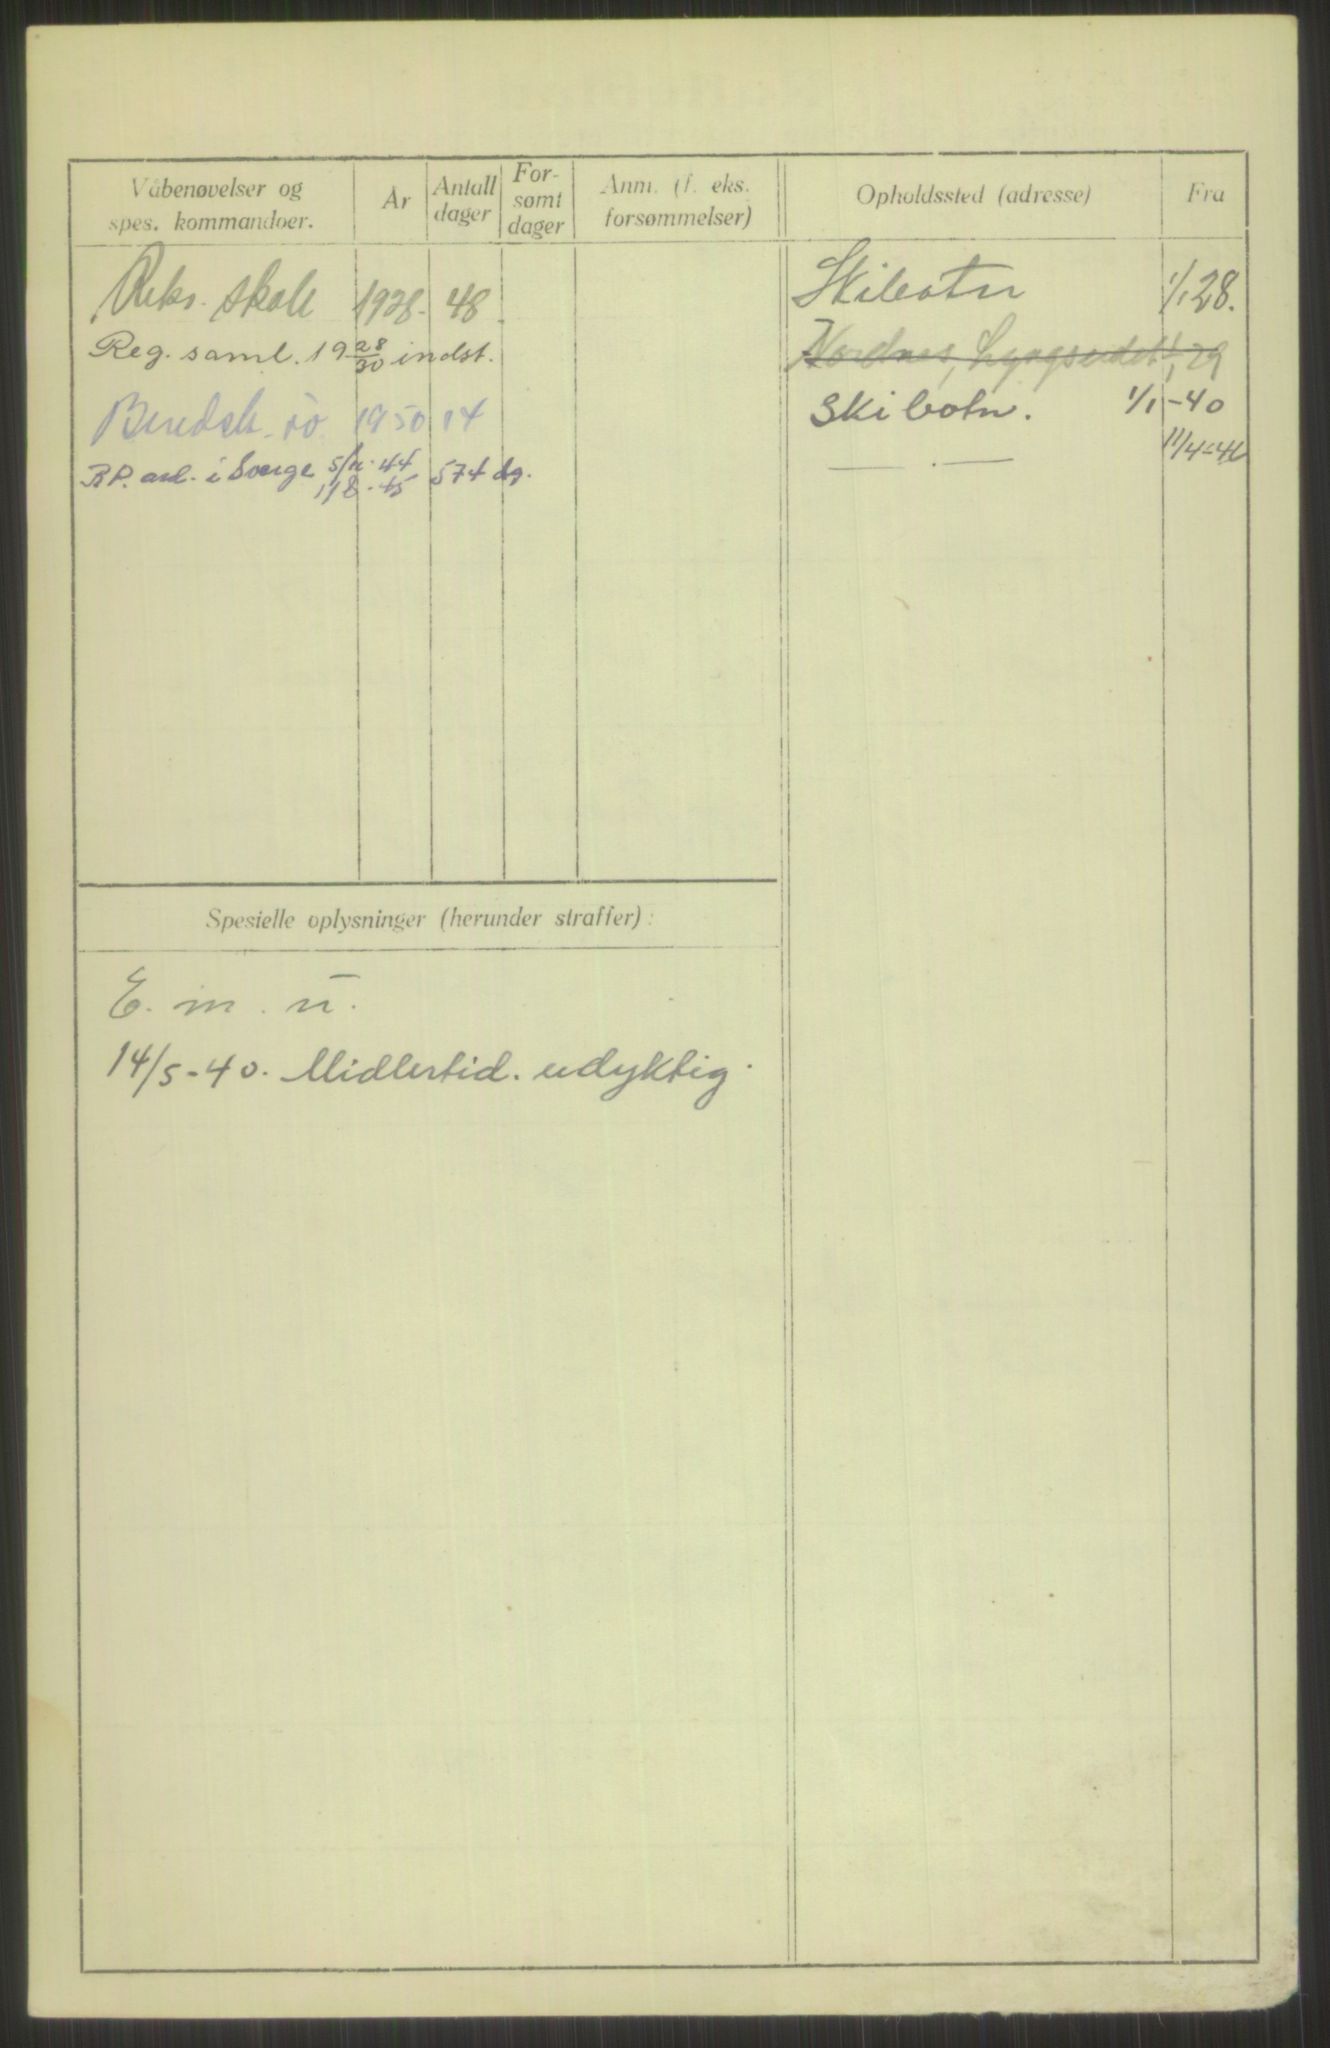 Våbenøvelser og spes. kommandoer.
År
Antall dager
For- sømt dager
Anm. (f. eks. forsømmelser)
Opholdssted (adresse)
Fra
Rekr. skole 1928. 48
Reg. saml. 19 28/30 indst.
Beredsk. 1950 14
B.P. avd. i Sverge 5/11-44 574 dg.
11/8-45
Skibotn 1/1 28.
Nordnes, Lyngseidet 1/1 29
Skibotn. 1/1-40
— . — 11/4-46
Spesielle oplysninger (herunder straffer):
E. m. u.
14/5-40. Midlertid. udyktig.